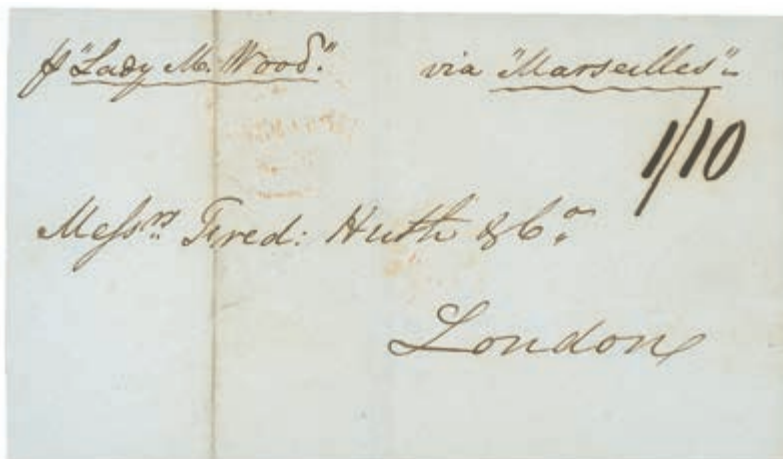 p "Lady M. Wood." via "Marseilles"
1/10
Messrs Fred: Huth & Co.
London